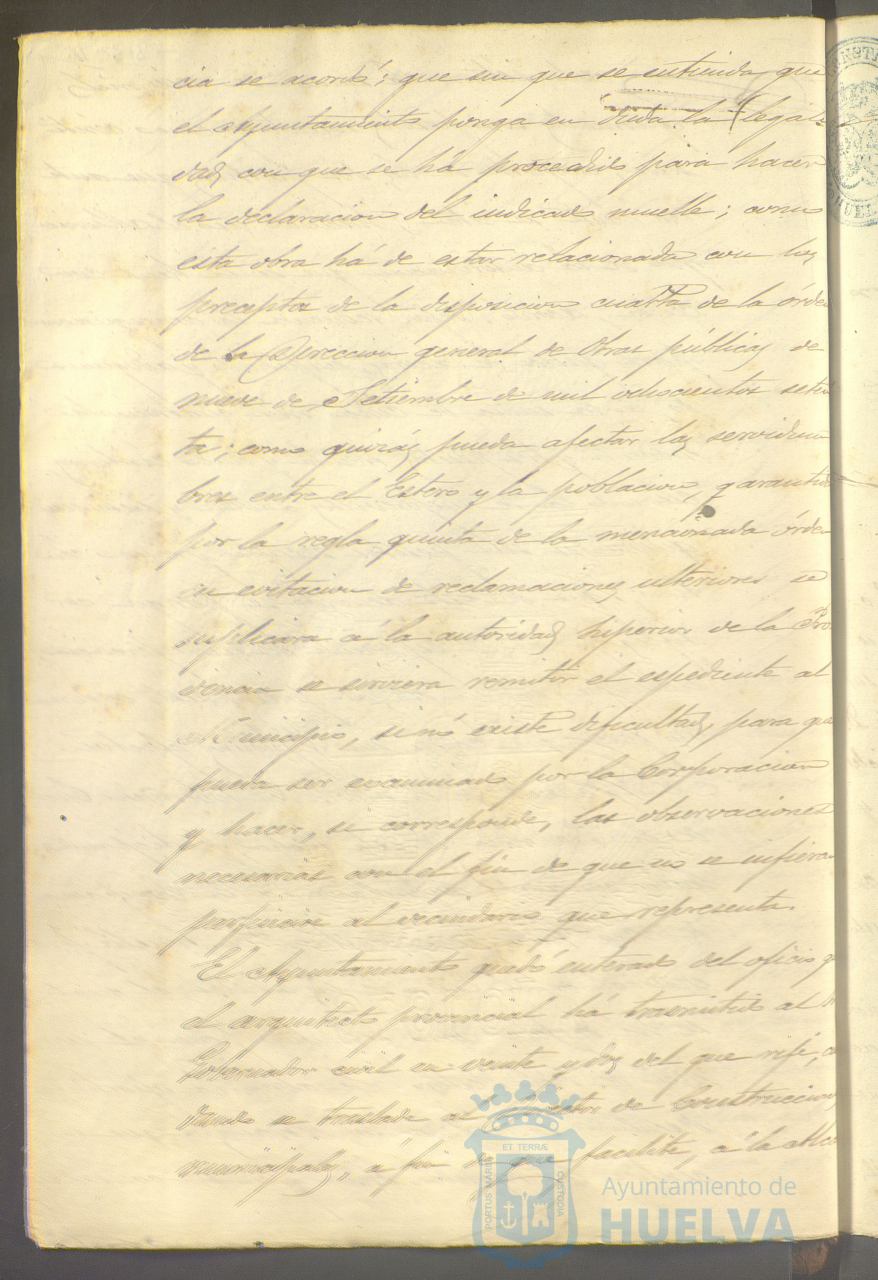 cia se acordó; que sin que se entienda que
el Ayuntamiento ponga en duda la legali-
dad con que se há procedido para hacer
la declaracion del indicado muelle; como
esta obra há de estar relacionada con los
preceptos de la disposicion cuarta de la órde
de la Direccion general de Obras públicas de
nueve de Setiembre de mil ochocientos seten
ta; como quizás pueda afectar las servidum
bres entre el Estero y la poblacion, garantid
por la regla quinta de la mencionada órde
en evitacion de reclamaciones ulteriores se
suplicára á la autoridad superior de la Pro
vincia se sirviera remitir el espediente al
Municipio, si nó existe dificultad, para que
pueda ser examinado por la Corporacion
y hacer, si corresponde, las observaciones
necesarias con el fin de que no se infieran
perjuicios al vecindario que representa.
El Ayuntamiento quedó enterado del oficio q
el arquitecto provincial há trasmitido al
Gobernador civil en veinte y dos del que rije,
dando se traslade al de Construcciones
municipales, á fin de que facilite, á la Alca
ET TERRÆ
PORTUS MARIS
CUSTODIA
Ayuntamiento de
HUELVA